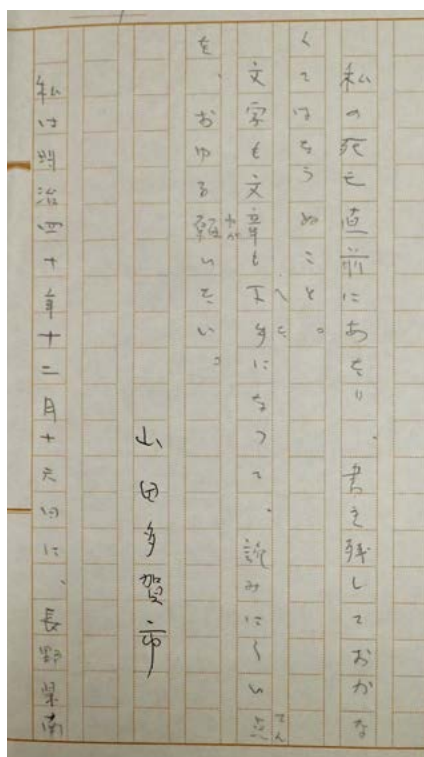 私の死も直前にあたり、書き残しておかな
くてはならぬこと。
文字も文章も下手になって、読みにくい点
へた
てん
を、おゆる願いたい。
ねが
山田多賀市
私は明治四十年十二月十六日に、長野県南